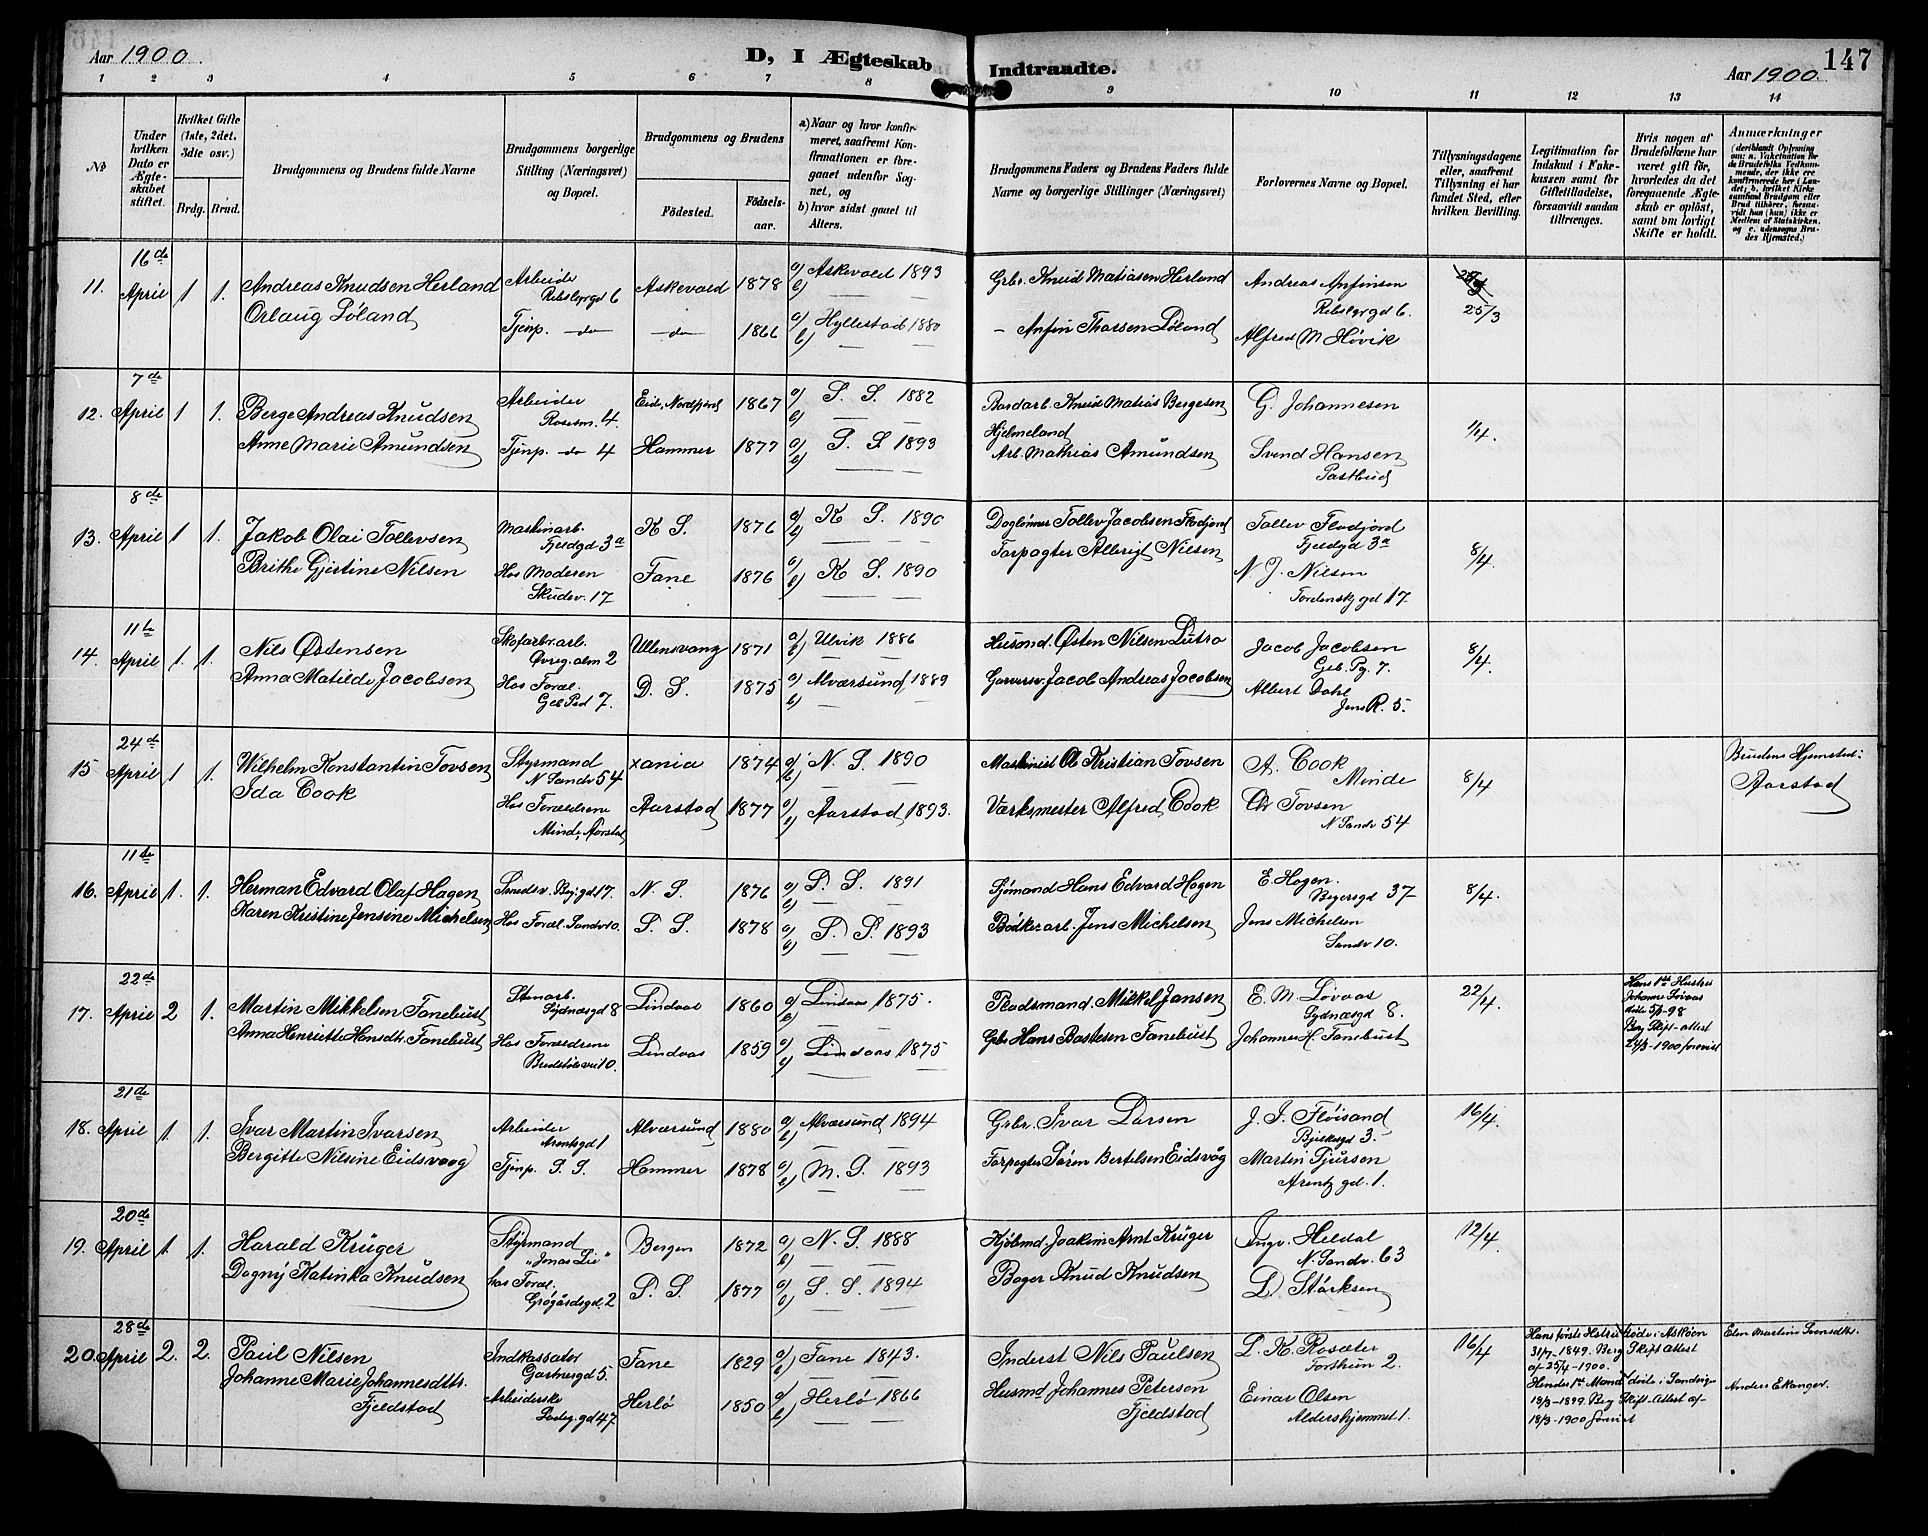 Aar 1900. D, I Ægteskab Indtraadte. Aar 1900. 147
1 2 3 4 5 6 7 8 9 10 11 12 13 14
№
Under hvilken Dato er Ægteskabet stiftet.
Hvilket Gifte (1ste, 2det. 3die osv.)
Brdg. Brud.
Brudgommens og Brudens fulde Navne
Brudgommens borgerlige Stilling (Næringsvei) og Bopæl.
Brudgommens og Brudens
Fødested. Fødselsaar.
a) Naar og hvor konfirmeret, saafremt Konfirmationen er foregaaet udenfor Sognet, og
b) hvor sidst gaaet til Alters.
Brudgommens Faders og Brudens Faders fulde Navne og borgerlige Stillinger (Næringsvei)
Forlovernes Navne og Bopæl.
Tillysningsdagene eller, saafremt Tillysning ei har fundet Sted, efter hvilken Bevilling.
Legitimation for Indskud i Enkekassen samt for Giftetilladelse, forsaavidt saadan tiltrænges.
Hvis nogen af Brudefolkene har været gift før, hvorledes da det foregaaende Ægteskab er opløst, samt om lovligt Skifte er holdt.
Anmærkninger
11. 16de April 1 1. Andreas Knudsen Herland Arbeider Askevold 1878 a) Askevold 1893 Grbr. Knud Matiasen Herland Andreas Anfinsen 25/3
b)
Orlaug Løland Tjenp. do do 1866 a) Hyllestad 1880 Anfin Thorsen Løland Alfred M Høvik
b)
12. 7de April 1 1. Berge Andreas Knudsen Arbeider Rosesm. 4. Eid, Nordfjord 1867 a) S. S. 1882 Bordarb. Knud Matias Bergesen G. Johannesen 1/4.
b) Hjelmeland
Anne Marie Amundsen Tjenp. do 4 Hammer 1877 a) S. S 1893 Arb. Mathias Amundsen Svend Hansen Postbud
b)
13. 8de April 1 1. Jakob Olai Tollevsen Maskinarb. Fjeldgd 3a K S. 1876 a) K S. 1890 Daglønner Tollev Jacobsen Flodjord Tollev Flodjord Fjeldgd 3a 8/4.
b)
Brithe Gjertine Nilsen Hos Moderen Skudev. 17 Fane 1876 a) K S. 1890 Forpagter Allerigt Nilsen N. J. Nilsen Tordenskj gd 17
b)
14. 11te April 1. 1. Nils Østensen Skofabr.arb. Øvreg.alm 2 Ullensvang 1871 a) Ulvik 1886 Husmd. Østen Nilsen Lutro Jacob Jacobsen 8/4.
b)
Anna Matilde Jacobsen Hos Foræl. D. S. 1875 a) Alværsund 1889 Garversv. Jacob Andreas Jacobsen Albert Dahl Jens R. 5.
b)
15 24de April 1 1. Wilhelm Konstantin Tovsen Styrmand N Sandv 54 xania 1874 a) N. S. 1890 Maskinist O Kristian Tovsen A. Cook Minde 8/4 Brudens Hjemsted: Aarstad
b)
Ida Cook Hos Forældrene Minde, Aarstad Aarstad 1877 a) Aarstad 1893. Værksmester Alfred Cook Chr Tovsen N Sandv 54
b)
16. 11te April 1. 1. Herman Edvard Olaf Hagen Smedsv. N. S. 1876 a) S. S. 1891 Sjømand Hans Edvard Hagen E. Hagen. 37 8/4.
b)
Karen Kristine Jensine Michelsen Hos Foræl. Sandv 10. S. S. 1878 a) S. S. 1893 Bødkerarb. Jens Michelsen Jens Michelsen Sandv 10.
b)
17. 22de April 2 1. Martin Mikkelsen Fanebust Stenarb. Sydnæsgd 8 Lindaas 1860 a) Lindaas 1875. Pladsmand. Mikkel Jansen E. M. Løvaas Sydnæsgd 8. 22/4. Hans 1ste Hustru Johanne Løvaas døde 5/8-98 Berg. Skift-attest 24/3-1900 forevist
b)
Anna Henriette Hansdtr. Fanebust Hos Forældrene Lindaas 1859 a) Lindaas 1875 Grbr Hans Bastesen Fanebust Johannes H. Fanebust
b)
18. 21de April 1. 1. Ivar Martin Ivarsen Arbeider Arentsgd 1 Alværsund 1880 a) Alværsund 1894 Grbr. Ivar Larsen J. I. Fløisand 3. 16/4.
b)
Bergitte Nilsine Eidsvaag Tjenp. S. S. Hammer 1878 a) M. S. 1893 Forpagter Søren Bertelsen Eidsvåg Martin Sjursen Arentz gd. 1.
b)
19. 20de April 1. 1. Harald Krüger Styrmand „Jonas Lie" Bergen 1872 a) N. S. 1888 Kjøbmd. Joakim Arnt Krüger Ingv. Heldal N. Sandv. 63 12/4.
b)
Dagny Katinka Knudsen hos Foræl. Grøgårdsgd. 2 S. S. 1877 a) S. S. 1894 Bager Knud Knudsen D. Størksen
b)
20. 28de April 2. 2. Paul Nilsen Indkassator Gartnergd 5. Fane 1829 a) Fane 1843. Inderst Nils Paulsen L. K. Rosæter 2. 16/4 Hans første Hstru døde i Askøen 31/7-1849. Berg Skift attest af 25/4-1900. Elen Martine Svensdtr.
b)
Johanne Marie Johannesdtr. Fjeldstad Arbeiderske 47 Herlø 1850 a) Herlø 1866 Husmd Johannes Petersen Fjeldstad Einar Olsen Aldershjemmet 1. Hendes 1ste Mand døde i Sandvigen 18/3-1899. Berg Skift-Attest af 18/3-1900 forevist Anders Ekanger.
b)